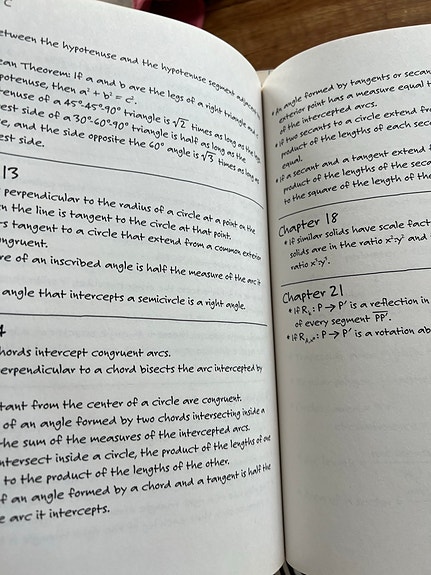 C
etween the hypotenuse and the hypotenuse segment adjacen
ean Theorem: If a and b are the legs of a right triangle and c
potenuse, then a² + b² = c².
tenuse of a 45°-45°-90° triangle is √2 times as long as the leg
est side of a 30°-60°-90° triangle is half as long as the
e, and the side opposite the 60° angle is √3 times as long as
est side.
13
perpendicular to the radius of a circle at a point on the
n the line is tangent to the circle at that point.
rs tangent to a circle that extend from a common exterior
ngruent.
re of an inscribed angle is half the measure of the arc it
angle that intercepts a semicircle is a right angle.
4
hords intercept congruent arcs.
erpendicular to a chord bisects the arc intercepted by
tant from the center of a circle are congruent.
of an angle formed by two chords intersecting inside a
the sum of the measures of the intercepted arcs.
ntersect inside a circle, the product of the lengths of one
to the product of the lengths of the other.
f an angle formed by a chord and a tangent is half the
e arc it intercepts.
• An angle formed by tangents or secan
exterior point has a measure equal t
of the intercepted arcs.
• If two secants to a circle extend fr
product of the lengths of each seco
equal.
• If a secant and a tangent extend f
product of the lengths of the sec
to the square of the length of the
Chapter 18
• If similar solids have scale fact
solids are in the ratio x²:y² and
ratio x³:y³.
Chapter 21
• If Rₗ: P → P′ is a reflection in
of every segment PP′.
: P → P′ is a rotation ab